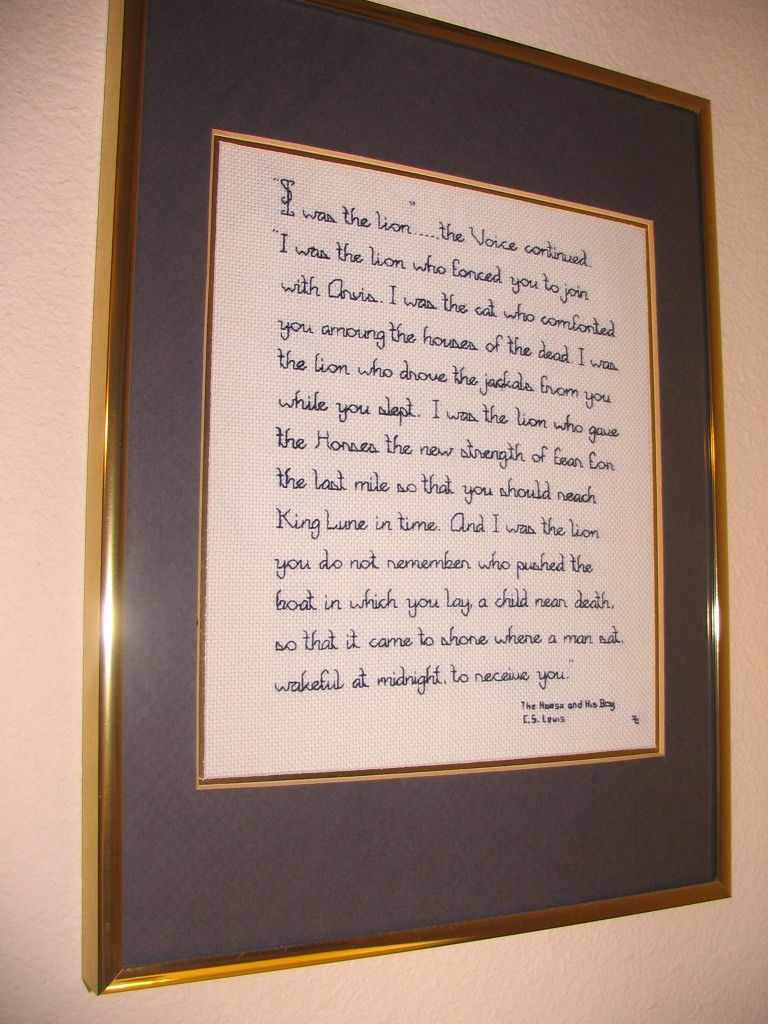 "I was the lion"....the Voice continued.
"I was the lion who forced you to join
with Arvis. I was the cat who comforted
you amoung the houses of the dead. I was
the lion who drove the jackals from you
while you slept. I was the lion who gave
the Horses the new strength of fear for
the last mile so that you should reach
King Lune in time. And I was the lion
you do not remember who pushed the
boat in which you lay, a child near death,
so that it came to shore where a man sat,
wakeful at midnight, to receive you."
The Horse and His Boy
C.S. Lewis